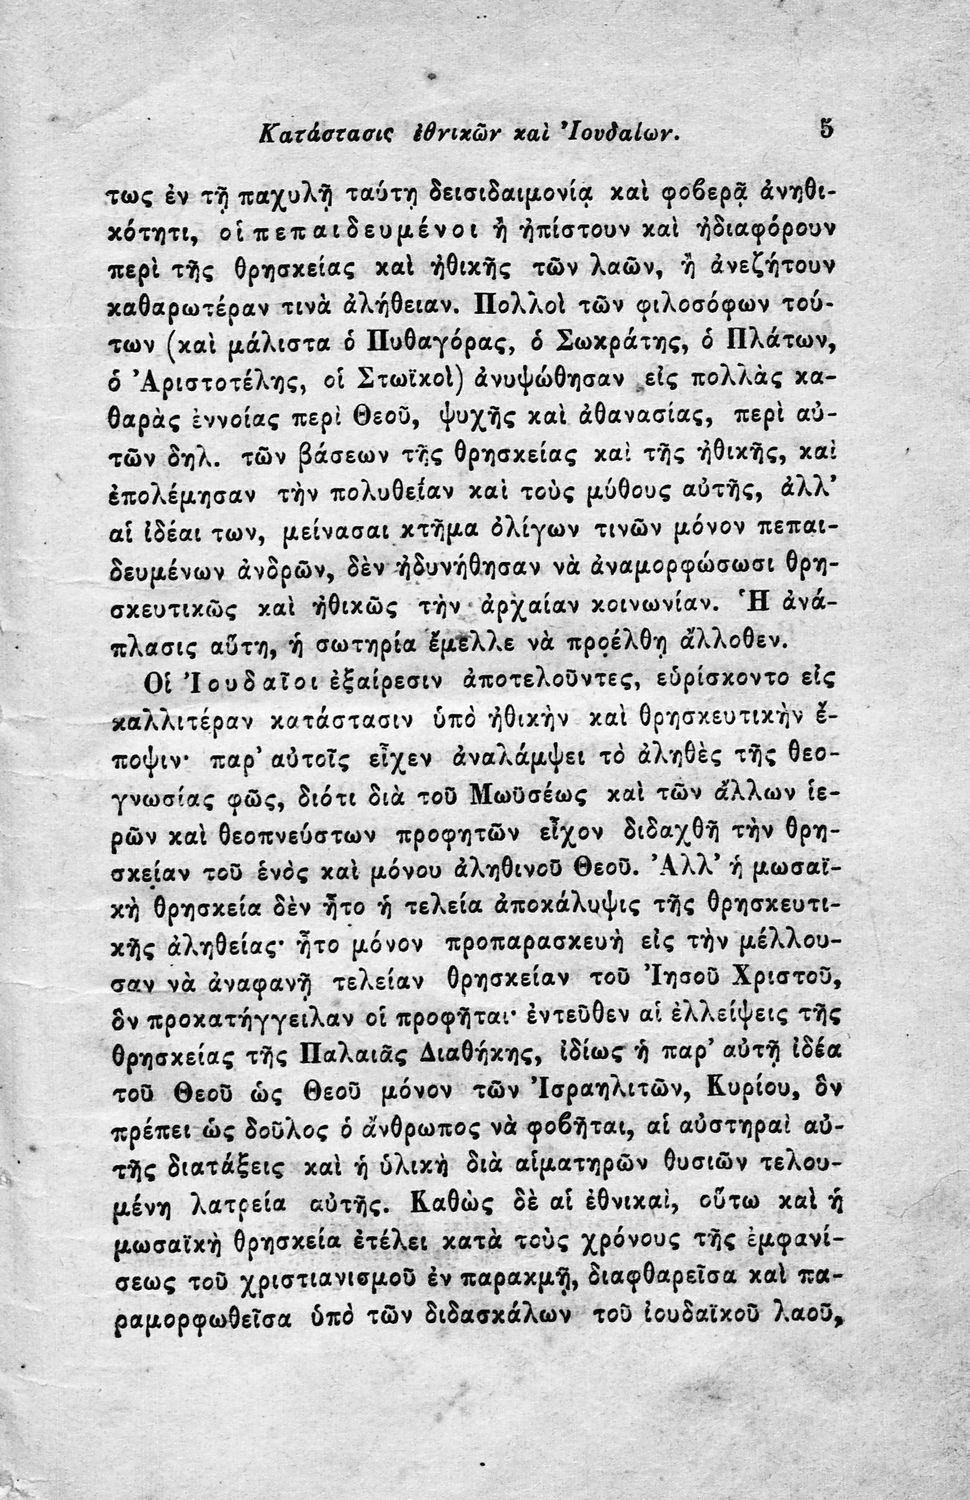 Κατάστασις ἐθνικῶν καὶ Ἰουδαίων. 5
τως ἐν τῇ παχυλῇ ταύτῃ δεισιδαιμονίᾳ καὶ φοβερᾷ ἀνηθι-
κότητι, οἱ πεπαιδευμένοι ἢ ἠπίστουν καὶ ἠδιαφόρουν
περὶ τῆς θρησκείας καὶ ἠθικῆς τῶν λαῶν, ἢ ἀνεζήτουν
καθαρωτέραν τινὰ ἀλήθειαν. Πολλοὶ τῶν φιλοσόφων τού-
των (καὶ μάλιστα ὁ Πυθαγόρας, ὁ Σωκράτης, ὁ Πλάτων,
ὁ Ἀριστοτέλης, οἱ Στωϊκοὶ) ἀνυψώθησαν εἰς πολλὰς κα-
θαρὰς ἐννοίας περὶ Θεοῦ, ψυχῆς καὶ ἀθανασίας, περὶ αὐ-
τῶν δηλ. τῶν βάσεων τῆς θρησκείας καὶ τῆς ἠθικῆς, καὶ
ἐπολέμησαν τὴν πολυθεΐαν καὶ τοὺς μύθους αὐτῆς, ἀλλ’
αἱ ἰδέαι των, μείνασαι κτῆμα ὀλίγων τινῶν μόνον πεπαι-
δευμένων ἀνδρῶν, δὲν ἠδυνήθησαν νὰ ἀναμορφώσωσι θρη-
σκευτικῶς καὶ ἠθικῶς τὴν ἀρχαίαν κοινωνίαν. Ἡ ἀνά-
πλασις αὕτη, ἡ σωτηρία ἔμελλε νὰ προέλθῃ ἄλλοθεν.
Οἱ Ἰουδαῖοι ἐξαίρεσιν ἀποτελοῦντες, εὑρίσκοντο εἰς
καλλιτέραν κατάστασιν ὑπὸ ἠθικὴν καὶ θρησκευτικὴν ἔ-
ποψιν· παρ’ αὐτοῖς εἶχεν ἀναλάμψει τὸ ἀληθὲς τῆς θεο-
γνωσίας φῶς, διότι διὰ τοῦ Μωϋσέως καὶ τῶν ἄλλων ἱε-
ρῶν καὶ θεοπνεύστων προφητῶν εἶχον διδαχθῆ τὴν θρη-
σκείαν τοῦ ἑνὸς καὶ μόνου ἀληθινοῦ Θεοῦ. Ἀλλ’ ἡ μωσαϊ-
κὴ θρησκεία δὲν ἦτο ἡ τελεία ἀποκάλυψις τῆς θρησκευτι-
κῆς ἀληθείας· ἦτο μόνον προπαρασκευὴ εἰς τὴν μέλλου-
σαν νὰ ἀναφανῇ τελείαν θρησκείαν τοῦ Ἰησοῦ Χριστοῦ,
ὃν προκατήγγειλαν οἱ προφῆται· ἐντεῦθεν αἱ ἐλλείψεις τῆς
θρησκείας τῆς Παλαιᾶς Διαθήκης, ἰδίως ἡ παρ’ αὐτῇ ἰδέα
τοῦ Θεοῦ ὡς Θεοῦ μόνον τῶν Ἰσραηλιτῶν, Κυρίου, ὃν
πρέπει ὡς δοῦλος ὁ ἄνθρωπος νὰ φοβῆται, αἱ αὐστηραὶ αὐ-
τῆς διατάξεις καὶ ἡ ὑλικὴ διὰ αἱματηρῶν θυσιῶν τελου-
μένη λατρεία αὐτῆς. Καθὼς δὲ αἱ ἐθνικαὶ, οὕτω καὶ ἡ
μωσαϊκὴ θρησκεία ἐτέλει κατὰ τοὺς χρόνους τῆς ἐμφανί-
σεως τοῦ χριστιανισμοῦ ἐν παρακμῇ, διαφθαρεῖσα καὶ πα-
ραμορφωθεῖσα ὑπὸ τῶν διδασκάλων τοῦ ἰουδαϊκοῦ λαοῦ,